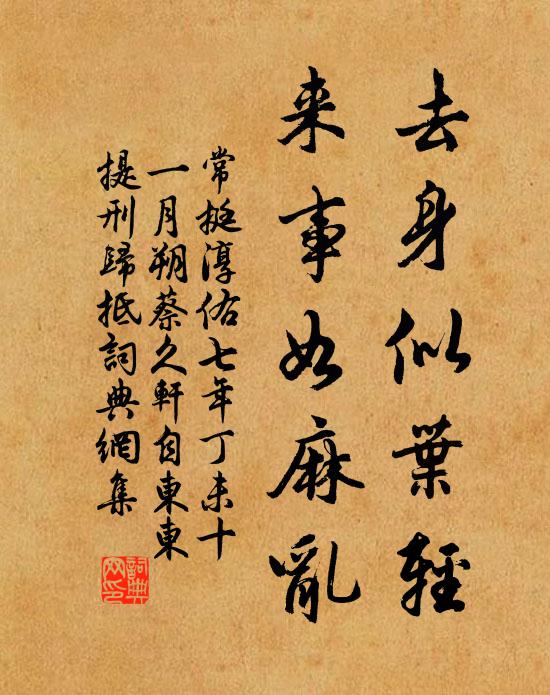 去身似葉輕
来事如麻亂
常挺淳佑七年丁未十
一月朔蔡久軒自東東
提刑歸抵詞典網集
詞典
网印